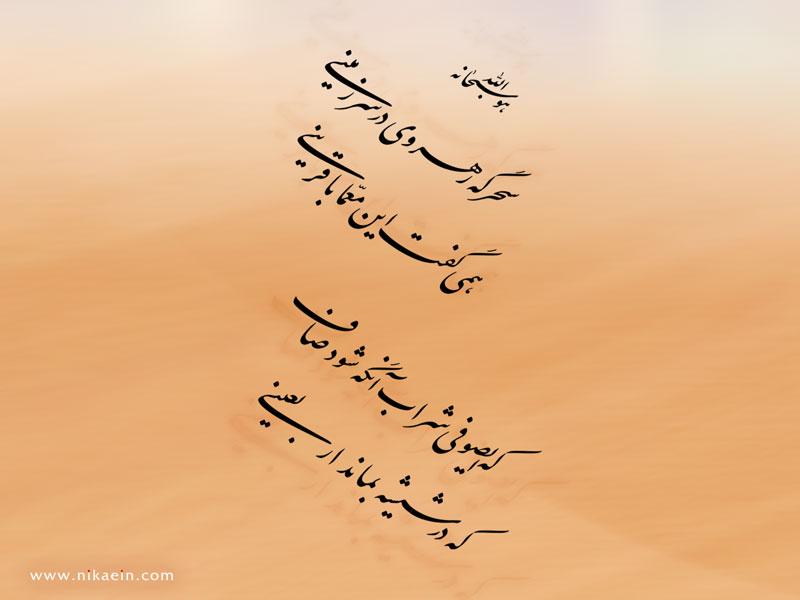 هو الله سبحانه
سحرگه رهروی در سرزمینی
همی گفت این معما با قرینی
که ای صوفی شراب آنگه شود صاف
که در شیشه بماند اربعینی
www.nikaein.com